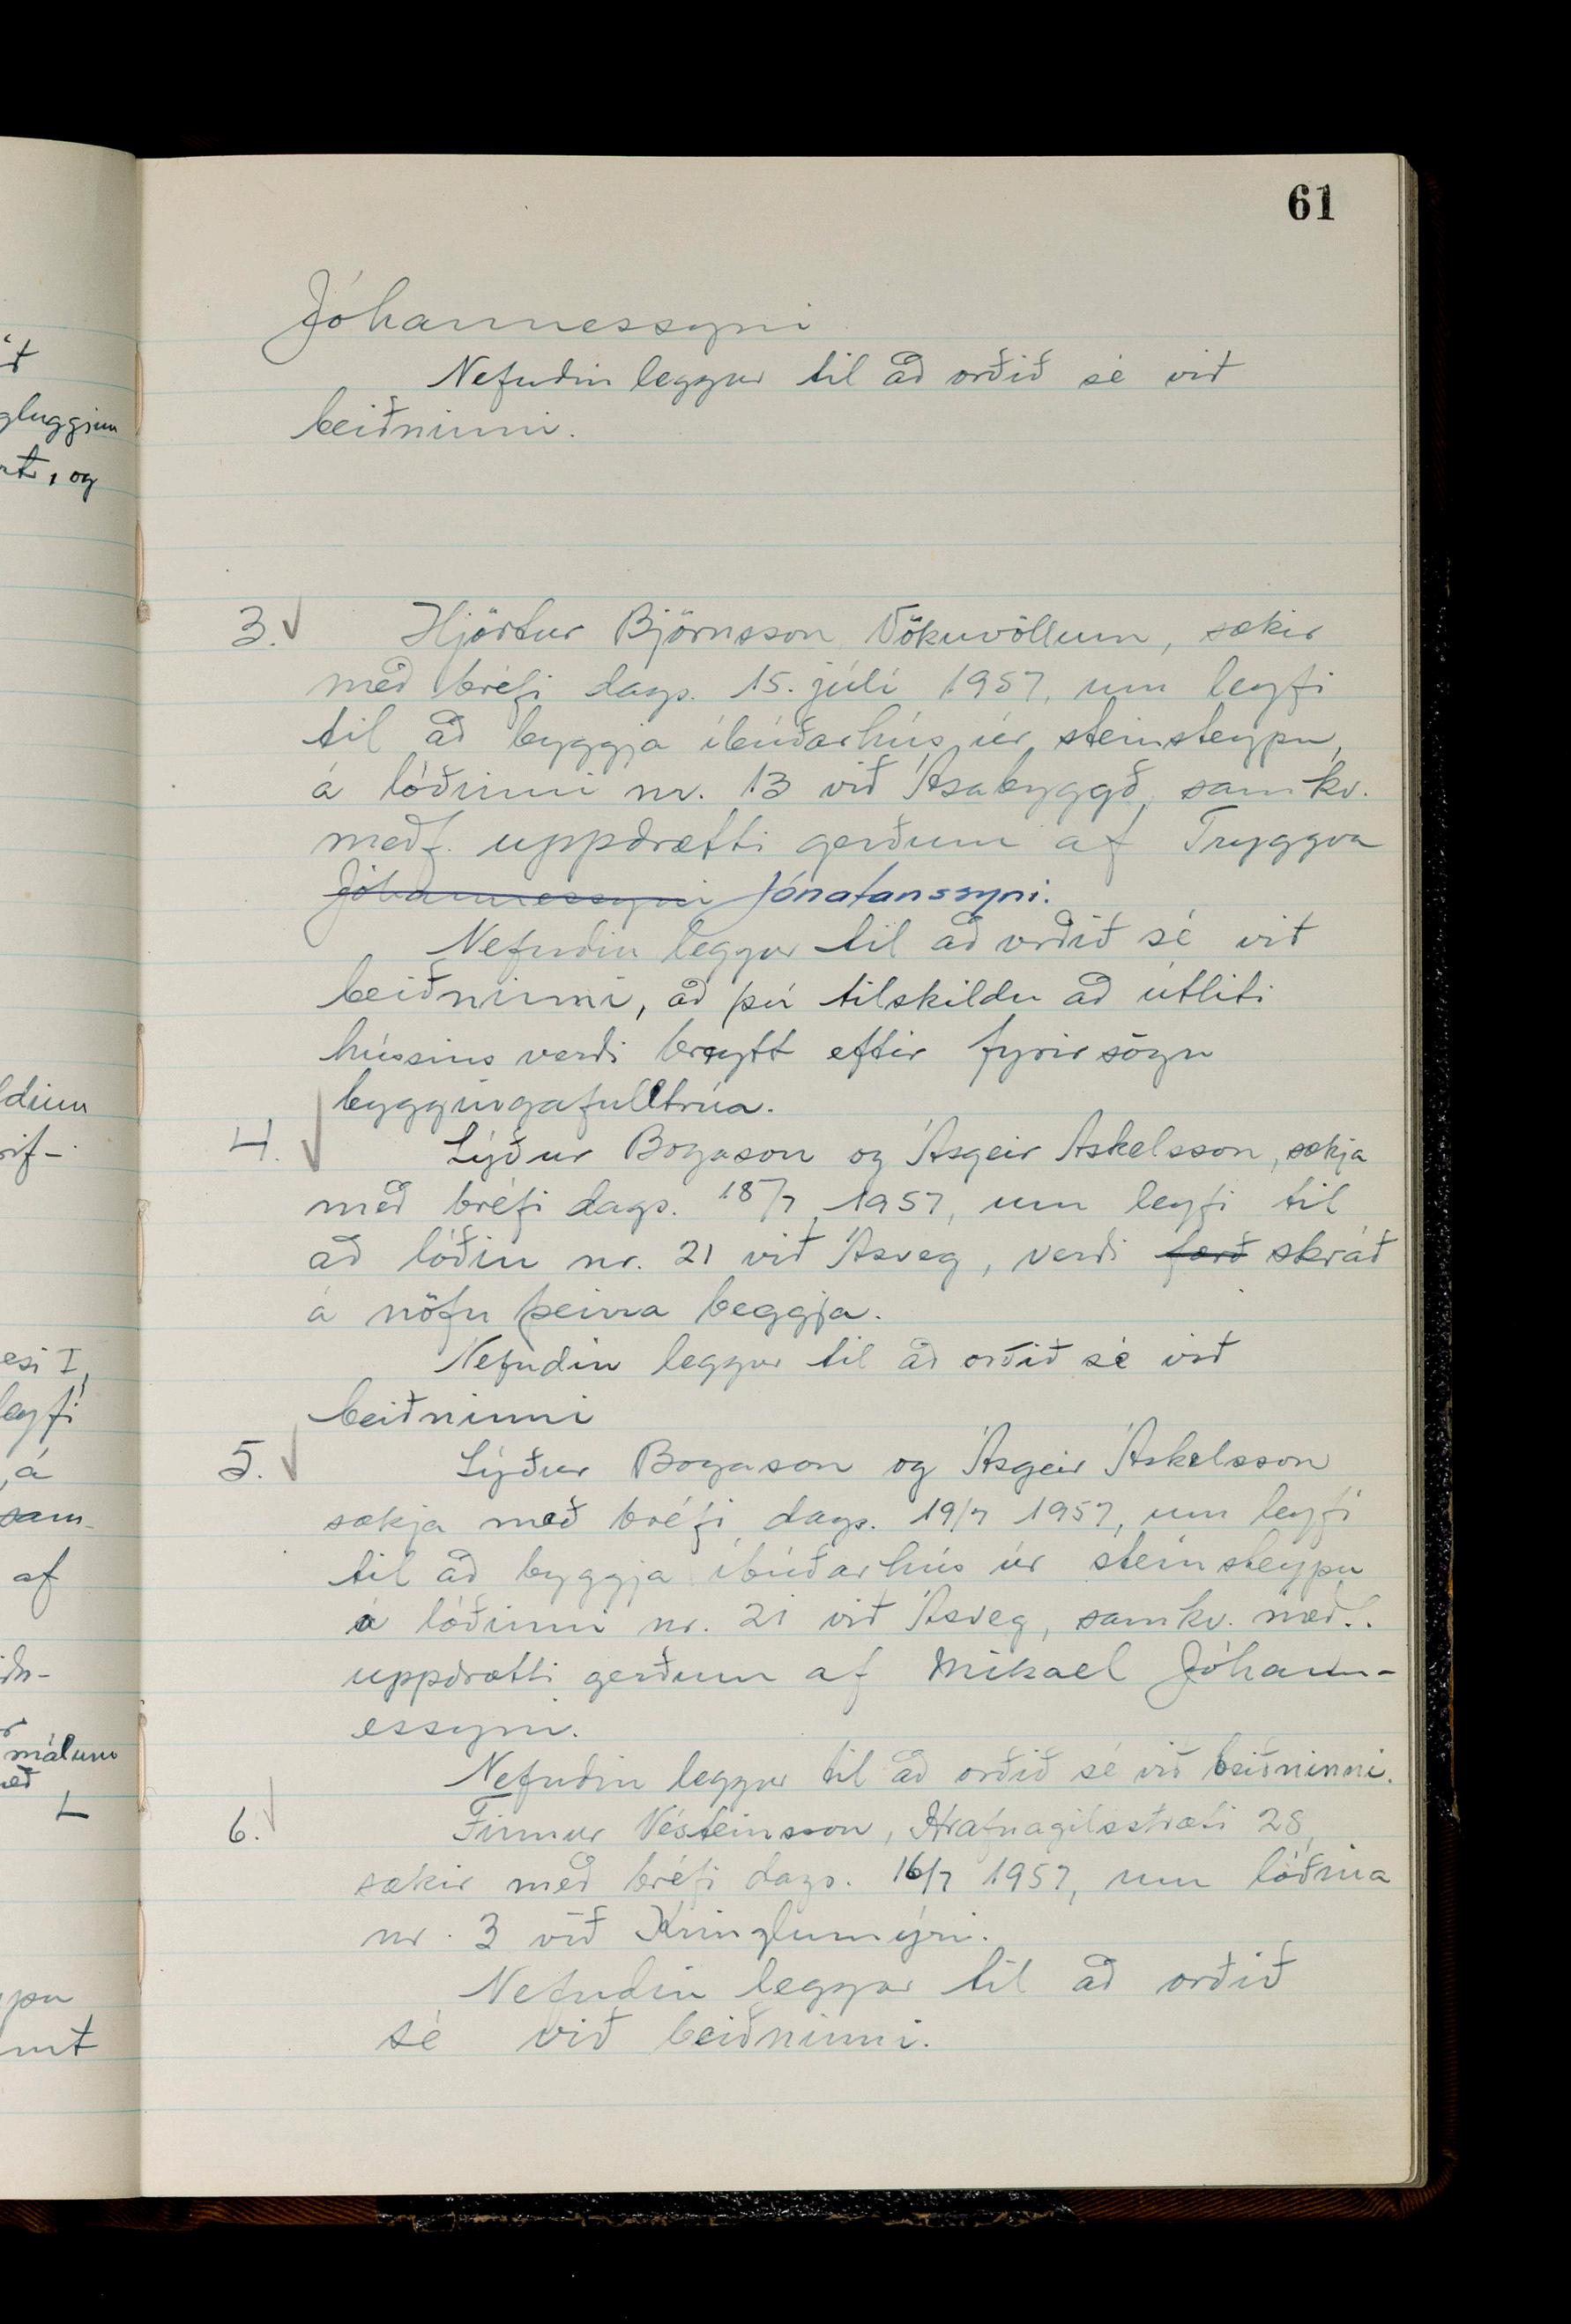 61
Jóhannessyni
Nefndin leggur til að orðið sé við
beiðninni.
3. Hjörtur Björnsson, Vökuvöllum, sækir
með bréfi dags. 15. júlí 1957, um leyfi
til að byggja íbúðarhús úr steinsteypu,
á lóðinni nr. 13 við Ásabyggð, samkv.
meðf. uppdrætti gerðum af Tryggva
Jóhannessyni Jónatanssyni.
Nefndin leggur til að orðið sé við
beiðninni, að því tilskildu að útliti
hússins verði breytt eftir fyrirsögn
byggingafulltrúa.
4. Lýður Bogason og Ásgeir Áskelsson, sækja
með bréfi dags. 18/7 1957, um leyfi til
að lóðin nr. 21 við Ásveg, verði færð skráð
á nöfn þeirra beggja.
Nefndin leggur til að orðið sé við
beiðninni
5. Lýður Bogason og Ásgeir Áskelsson
sækja með bréfi dags. 19/7 1957, um leyfi
til að byggja íbúðarhús úr steinsteypu
á lóðinni nr. 21 við Ásveg, samkv. með..
uppdrætti gerðum af Mikael Jóhann-
essyni.
Nefndin leggur til að orðið sé við beiðninni.
6. Finnur Vésteinsson, Hrafnagilsstræti 28,
sækir með bréfi dags. 16/7 1957, um lóðina
nr. 3 við Kringlumýri.
Nefndin leggur til að orðið
sé við beiðninni.